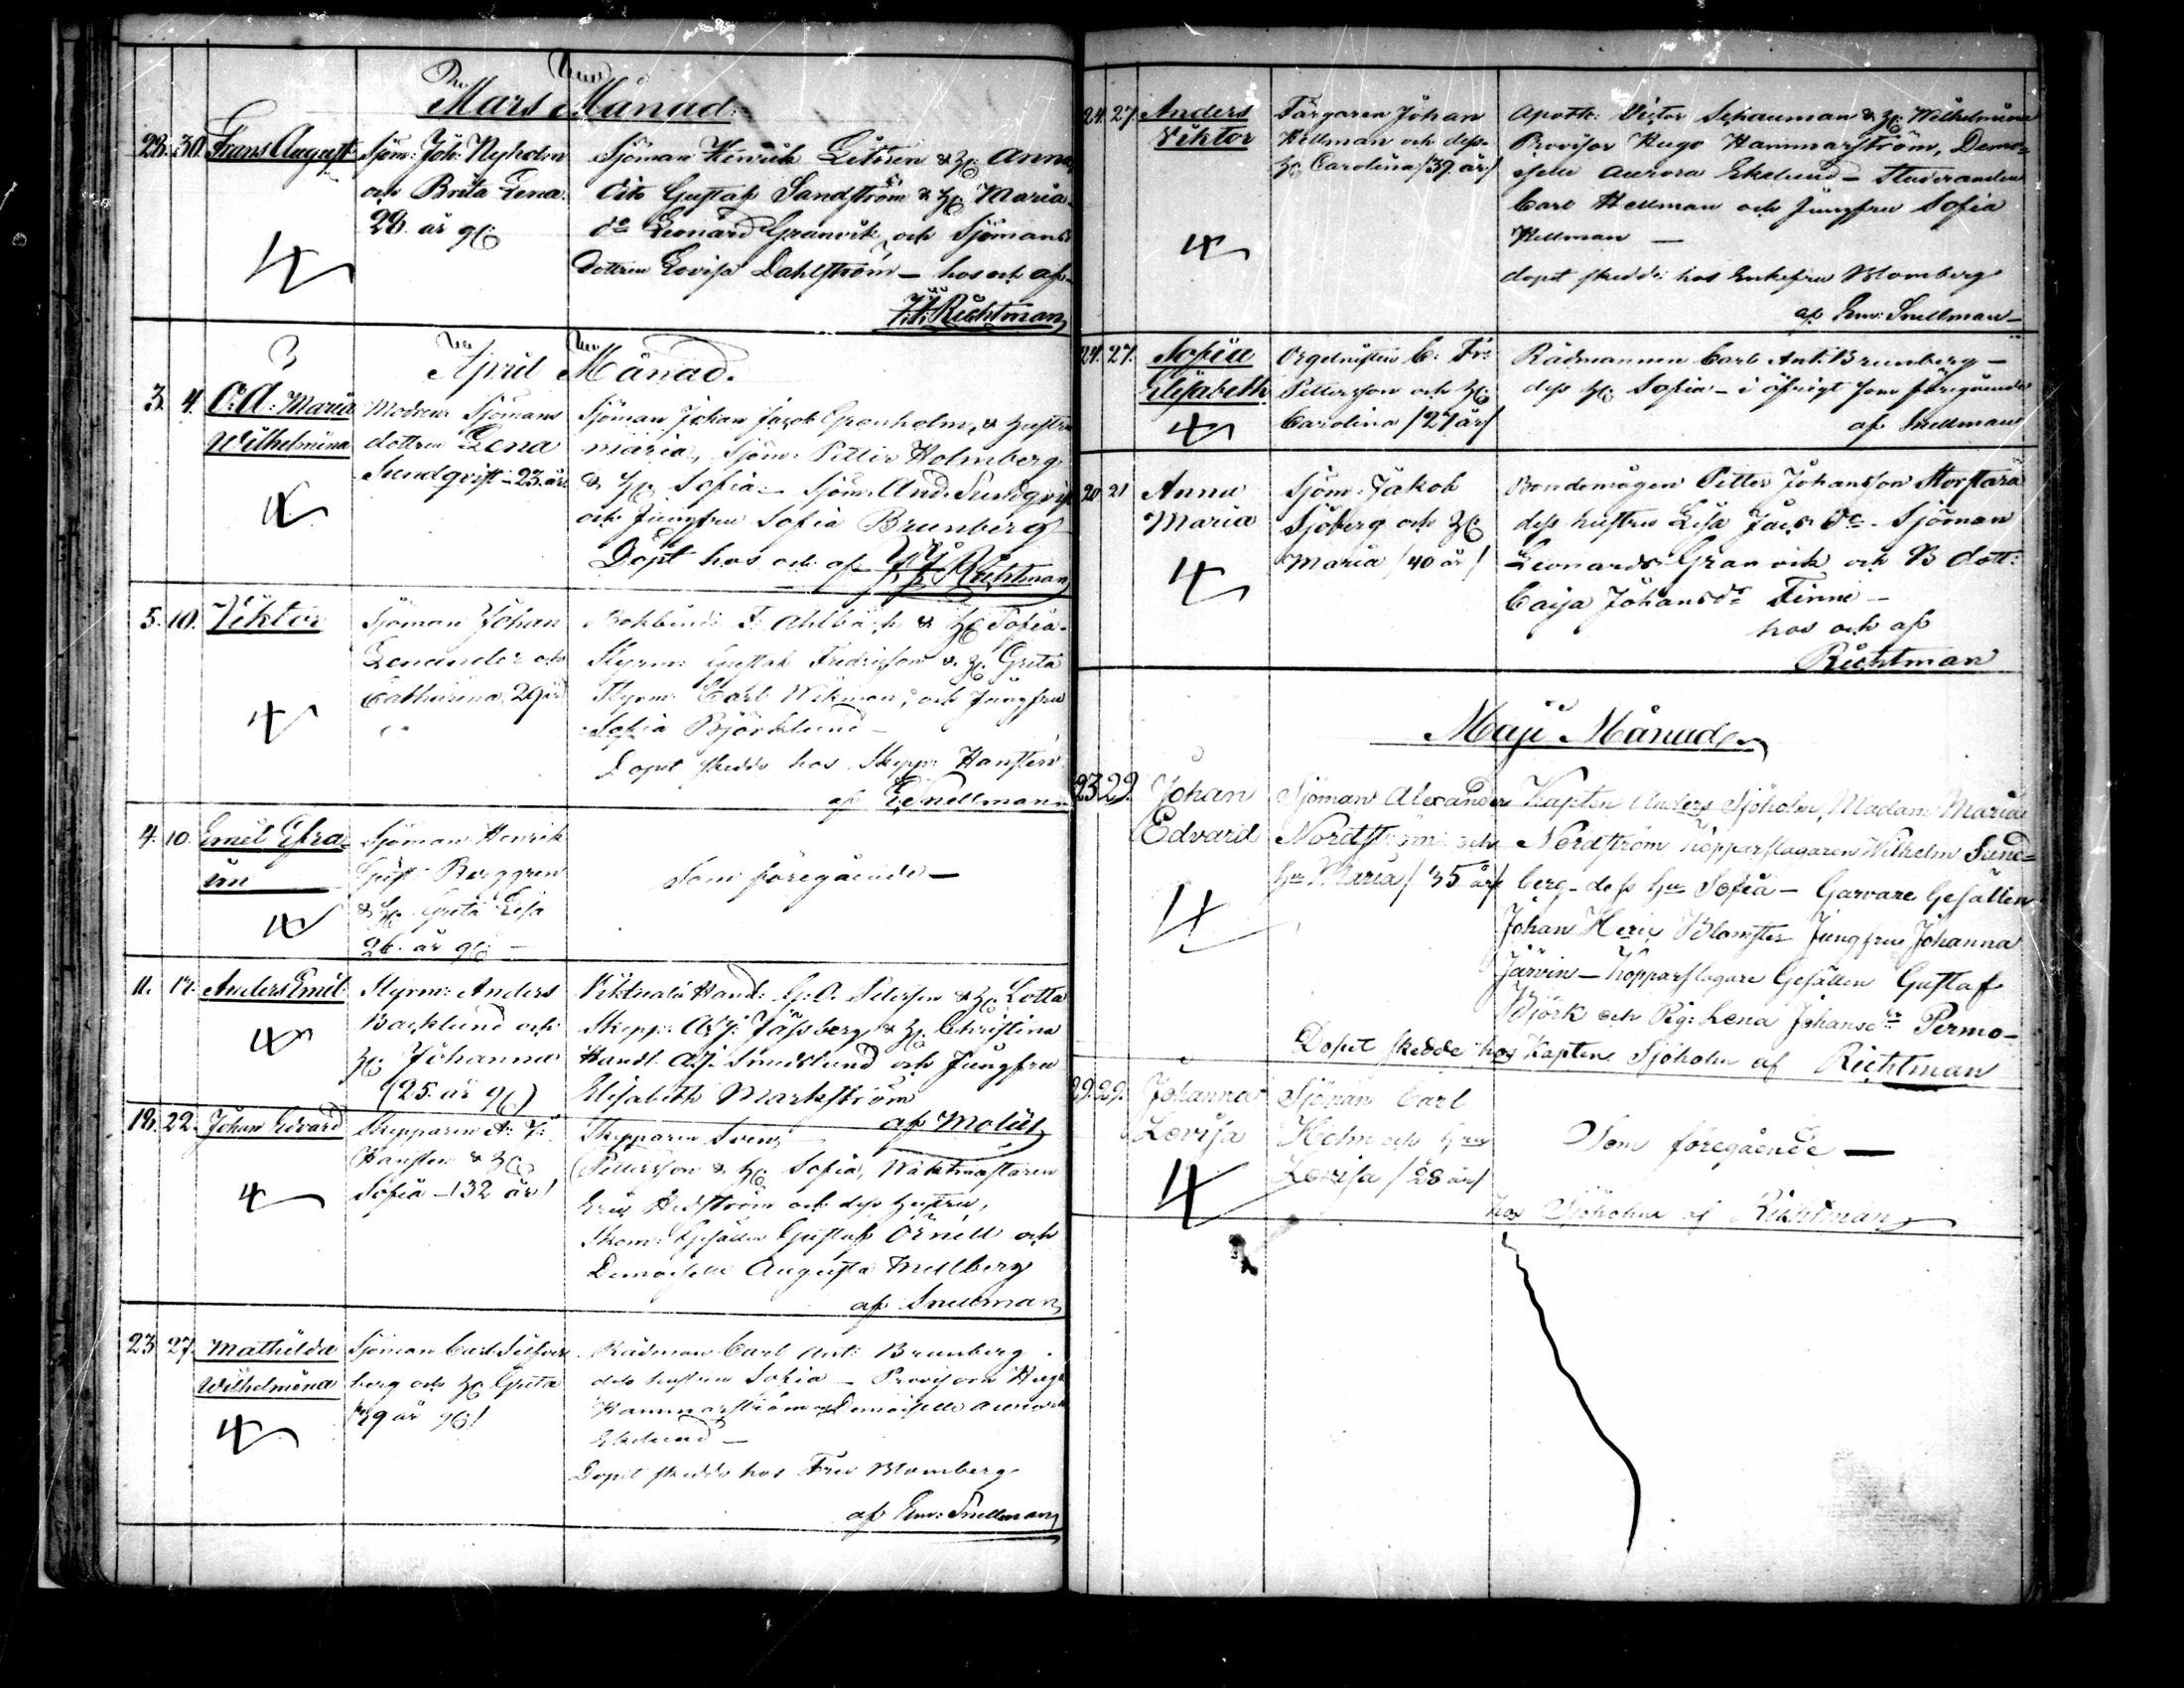 Mars Månad
28. 30. Frans August Sjöm: Joh: Nyholm Sjöman Henrik Litsen & H: Anna
och Brita Lena Dito Gustaf Sandström & H: Maria
28. år gl: do Leonard Granvik och Sjömans
dottren Lovisa Dahlström — hos och af
Richtman
April Månad.
3. 4. O: Ä: Maria Wilhelmina Modren Sjömans
dottren Lena
Sundqvist - 23. år
Sjöman Johan Jacob Granholm, & hustru
Maria, Sjöm: Petter Holmberg
& H: Sofia - Sjöm: And: Sundqvist
och Jungfru Sofia Brunberg
Döpt hos och af Richtman
5. 10. Viktor Sjöman Johan
Lenander och
Catharina 29 år
Bokbind: F: Ahlbäck & H: Sofia
Styrm: Gustaf Fredrikson & H: Greta
Styrm: Carl Wikman, och Jungfru
Sofia Björklund —
Dopet skedde hos Skepp: Hansten
af E Snellman
4. 10. Emil Efra-
im
Sjöman Henrik
Gust: Berggren
& H: Greta Lisa
26. år gl: —
Som föregående —
11. 17. Anders Emil Styrm: Anders
Backlund och
H: Johanna
(25. år gl:)
Viktualie Hand: G: A: Peterson & H: Lotta
Skepp: A: J: Jässberg & H: Christina
Handl: A: J: Smedslund och Jungfru
Elisabeth Markström
af Moliis
18. 22. Johan Edvard Skepparen A: J:
Hansten & H:
Sofia — /32 år/
Skepparen Sven
Pettersson & H: Sofia, Waktmästaren
Eric Hedström och dess hustru,
Skom: Gesällen Gustaf Örnell och
Demoiselle Augusta Mellberg
af Snellman
23 27. Mathilda
Wilhelmina
Sjöman Carl Silfver
berg och H: Greta
/39 år gl:/
Rådman Carl Ant: Brunberg
dess hustru Sofia — Provisorn Hugo
Hammarström & Demoiselle Aurora
Ekelund —
Dopet skedde hos Fru Blomberg
af Em: Snellman
24. 27. Anders
Viktor
Färgaren Johan
Hellman och dess
H: Carolina /39. år/
Apoth: Victor Schauman & H: Wilhelmina
Provisor Hugo Hammarström, Demo-
iselle Aurora Ekelund — Studeranden
Carl Hellman och Jungfru Sofia
Hellman —
dopet skedde hos Enkefru Blomberg
af Em: Snellman —
24. 27. Sofia
Elisabeth
Orgelnisten C: Fr:
Pettersson och H:
Carolina /27 år/
Rådmannen Carl Ant: Brunberg —
dess H: Sofia — i öfrigt som föregående
af Snellman
20 21 Anna
Maria
Sjöm: Jakob
Sjöberg och H:
Maria /40 år/
Bondemågen Petter Johansson Storstara
dess hustru Lisa Jacobsdr. Sjöman
Leonard Granvik och B dott:
Caisa Johansdr Finne —
hos och af
Richtman
Maji Månad
23 29. Johan
Edvard
Sjöman Alexander
Nordström och
Hu Maria /35 år/
Kapten Anders Sjöholm, Madam Maria
Nordström Kopparslagaren Wilhelm Sund-
berg - dess Hu Sofia — Garvare Gesällen
Johan Heric Blomster Jungfru Johanna
Järvin — Kopparslagare Gesällen Gustaf
Björk och Pig: Lena Johansdr Permo —
Dopet skedde hos Kapten Sjöholm af Richtman
29. 29. Johanna
Lovisa
Sjöman Carl
Holm och Hru
Lovisa /28 år/
Som föregående —
hos Sjöholm af Richtman